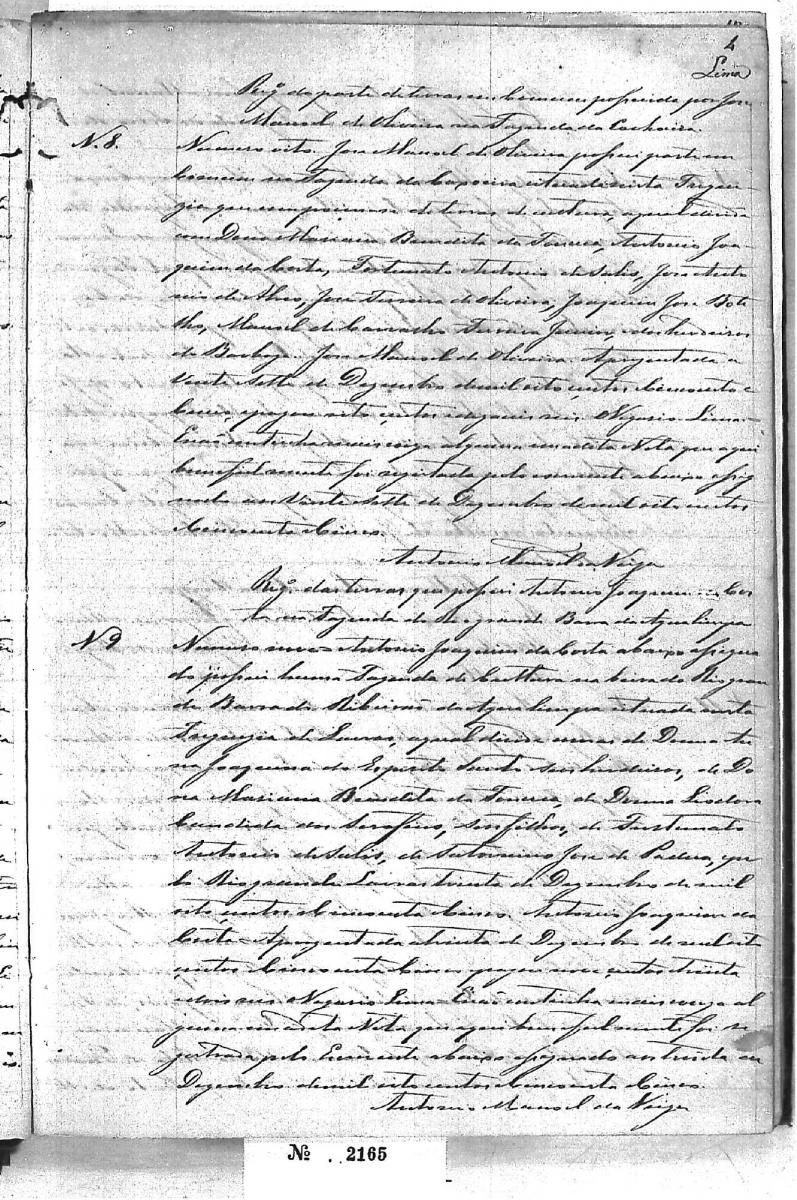 4
Lima
Reg.º da parte de terras em Commum possuida por Jose
Manoel de Oliveira na Fazenda da Cachoeira.
N. 8. Numero oito. Jose Manoel de Oliveira possui parte em
Commum na Fazenda da Caxoeira nesta Fregue-
zia que de terras de cultura, a qual divisa
com Dona Mariana Benedita da Fonceca, Antonio Joa-
quim da Costa, Fortunato Antonio de Salis, Jose Anto
nio de Jose Ferreira de Oliveira, Joaquim Jose Bote
lho, Manoel de Carvalho Ferreira Junior, e dos herdeiros
de Barboza. Jose Manoel de Oliveira. Aprezentada a
Vinte Sette de Dezembro de mil oito centos Cincoenta e
Cinco, e pagou oito centos e reis. O Vigario Lima =
E não continha mais couza alguma em a dita Nota que aqui
bem e fielmente foi pelo escrevente abaixo assig
nado em Vinte Sette de Dezembro de mil oito centos
Cincoenta e Cinco.
Antonio Manoel da Veiga
Reg.º das terras que possui Antonio Joaquim da Cos
ta na Fazenda do Rio grande Barra de Agua limpa
N 9 Numero nove = Antonio Joaquim da Costa abaixo assigna
do possui huma Fazenda de Cultura na beira do Rio gran
de Barra do Ribeirão da Agua limpa cita nesta
Freguezia de Lavras, a qual divisa de Donna
Joaquina do Espirito Santo e seus herdeiros, de Do
na Mariana Benedita da Fonceca, de Donna Liodora
Candida dos Serafins, e seos filhos, de Fortunato
Antonio de Salis, de Saturnino Jose de Padua, e pe
lo Rio grande Lavras trinta de Dezembro de mil
oito centos e Cincoenta e Cinco. Antonio Joaquim da
Costa = Aprezentada a trinta de Dezembro de mil oito
centos Cincoenta e Cinco pagou nove centos e trinta
e dois reis O Vigario Lima = E não continha mais couza al
guma em a dita Nota que aqui bem e fielmente foi re
gistrada pelo Escrevente abaixo assignado aos trinta de
Dezembro de mil oito centos e Cincoenta e Cinco.
Antonio Manoel da Veiga
Nº 2165